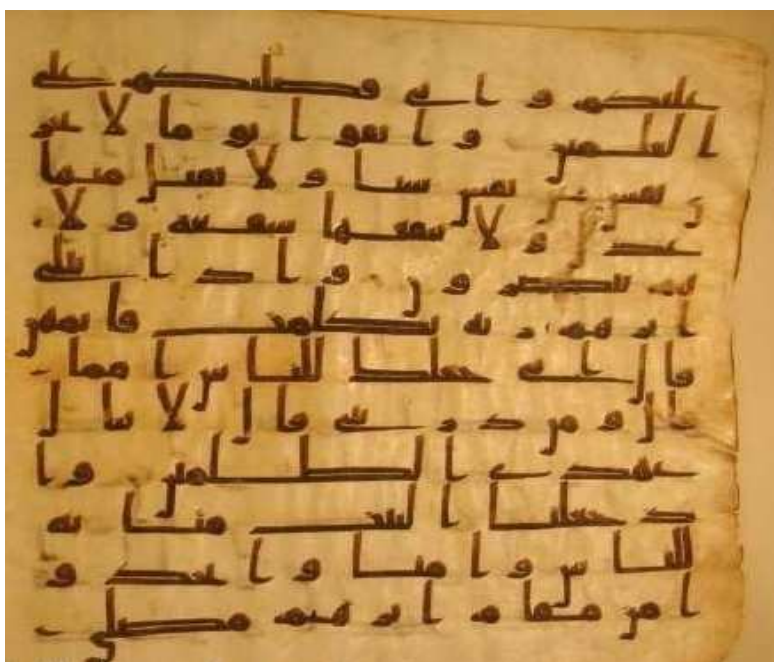 عليكم و انى فضلتكم على
العلمين و اتقوا يوما لا تجز
ى نفس عن نفس شيا و لا يقبل منها
عدل و لا تنفعها شفعة و لا
هم ينصرون و اذ ابتلى
ابرهيم ربه بكلمت فاتمهن
قال انى جعلك للناس اماما
قال و من ذريتى قال لا ينال
عهدى الظلمين و ا
ذ جعلنا البيت مثابة
للناس و امنا و اتخذو
ا من مقام ابرهيم مصلى